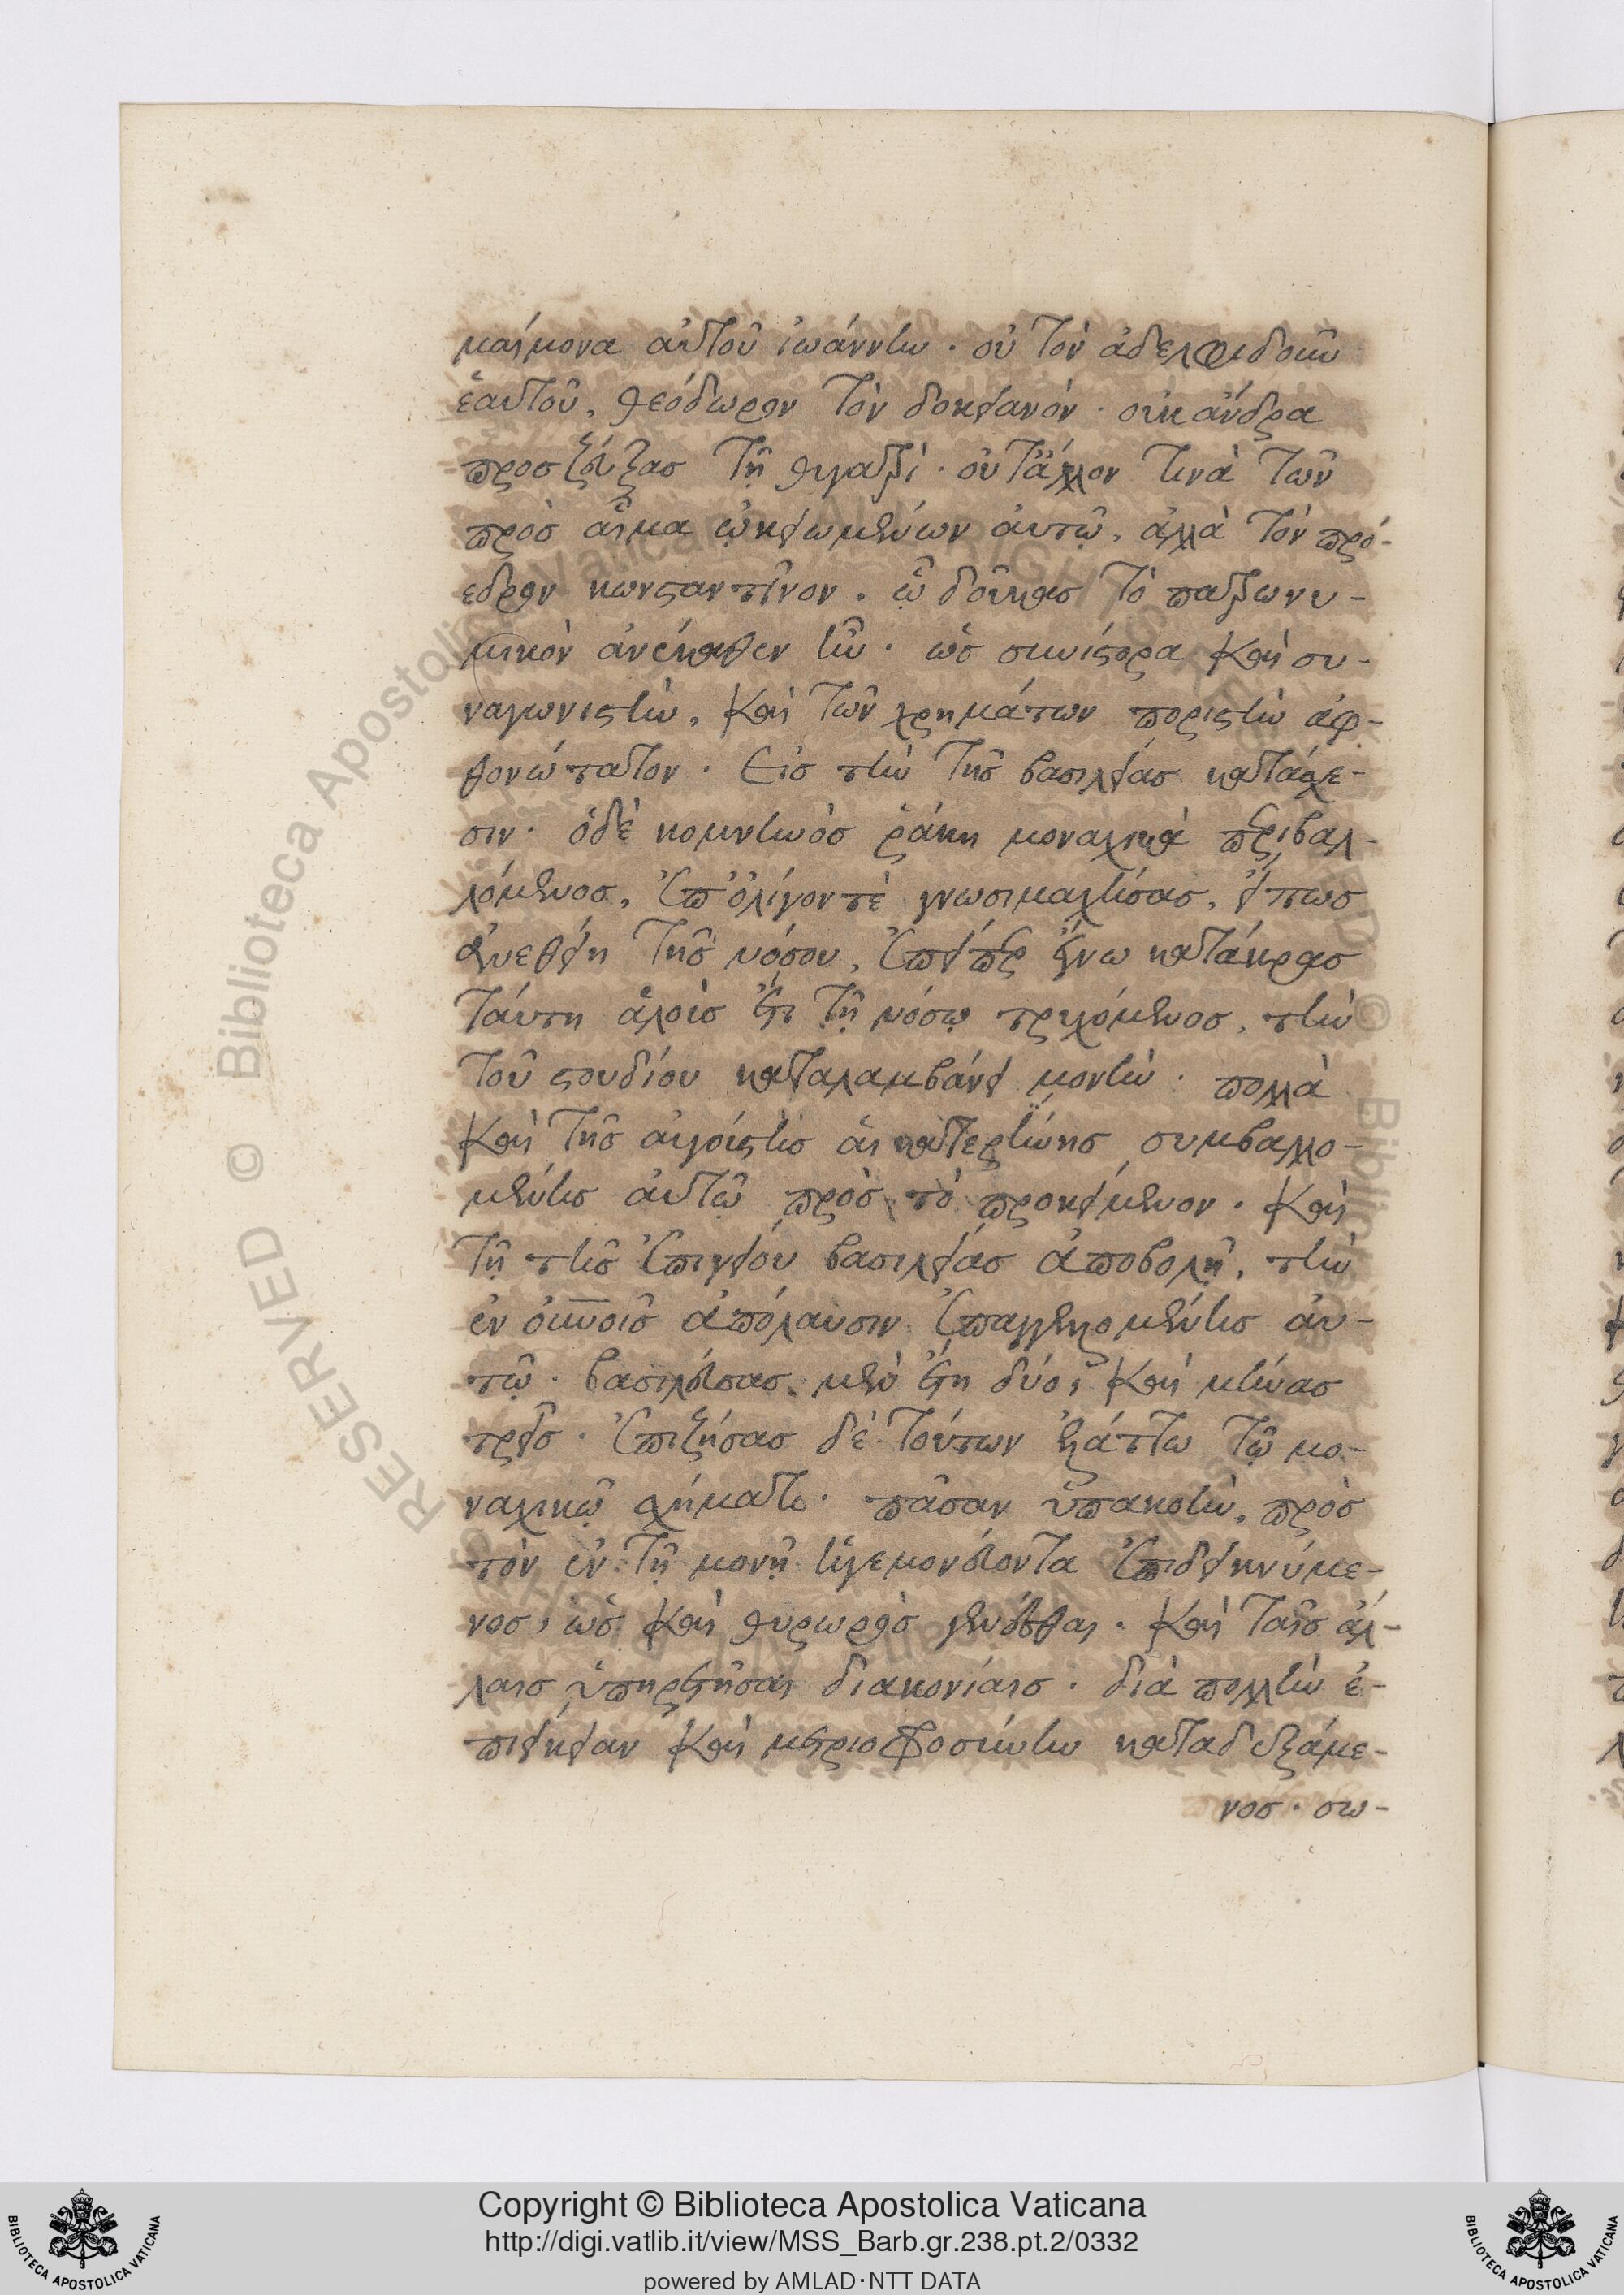 μαίμονα αὐτοῦ ἰωάννην · οὐ τὸν ἀδελφιδοῦν
ἑαυτοῦ, θεόδωρον τὸν δοκειανόν · οὐκ ἄνδρα
προσζεύξας τῇ θυγατρὶ · οὔτ' ἄλλον τινὰ τῶν
πρὸς αἷμα ὠκειωμένων αὐτῷ, ἀλλὰ τὸν πρό-
εδρον κωνσταντῖνον · ᾧ δοῦκας τὸ πατρωνυ-
μικὸν ἀνέκαθεν ἦν · ὡς συνίστορα καὶ συ-
ναγωνιστὴν, καὶ τῶν χρημάτων ποριστὴν ἀφ-
θονώτατον · εἰς τὴν τῆς βασιλείας κατάσχε-
σιν · ὁ δὲ κομνηνὸς ῥάκη μοναχικὰ περιβαλ-
λόμενος, ἐπ' ὀλίγον τὲ γνωσιμαχήσας, εἴπως
ἀνεθείη τῆς νόσου, ἐπείπερ ἔγνω κατάκρας
ταύτη ἁλοὺς ἔτι τῇ νόσῳ τρυχόμενος, τὴν
τοῦ στουδίου καταλαμβάνει μονὴν · πολλὰ
καὶ τῆς αὐγούστης αἰκατερίνης συμβαλλο-
μένης αὐτῷ πρὸς τὸ προκείμενον · καὶ
τῇ τῆς ἐπιγείου βασιλείας ἀποβολῇ, τὴν
ἐν οὐνοῖς ἀπόλαυσιν ἐπαγγελλομένης αὐ-
τῷ · βασιλεύσας μὲν ἔτη δύο, καὶ μῆνας
τρεῖς · ἐπιζήσας δὲ τούτων ἐλάττω τῷ μο-
ναχικῷ σχήματι · πᾶσαν ὑπακοὴν, πρὸς
τὸν ἐν τῇ μονῇ ἡγεμονεύοντα ἐπιδεικνύμε-
νος, ὡς καὶ θυρωρὸς γενέσθαι · καὶ ταῖς ἀλ-
λαις ὑπηρετῆσαι διακονίαις · διὰ πολλὴν ἐ-
πιείκειαν καὶ μετριοφροσύνην καταδεξάμε-
νος · σω-
Copyright © Biblioteca Apostolica Vaticana
http://digi.vatlib.it/view/MSS_Barb.gr.238.pt.2/0332
powered by AMLAD·NTT DATA